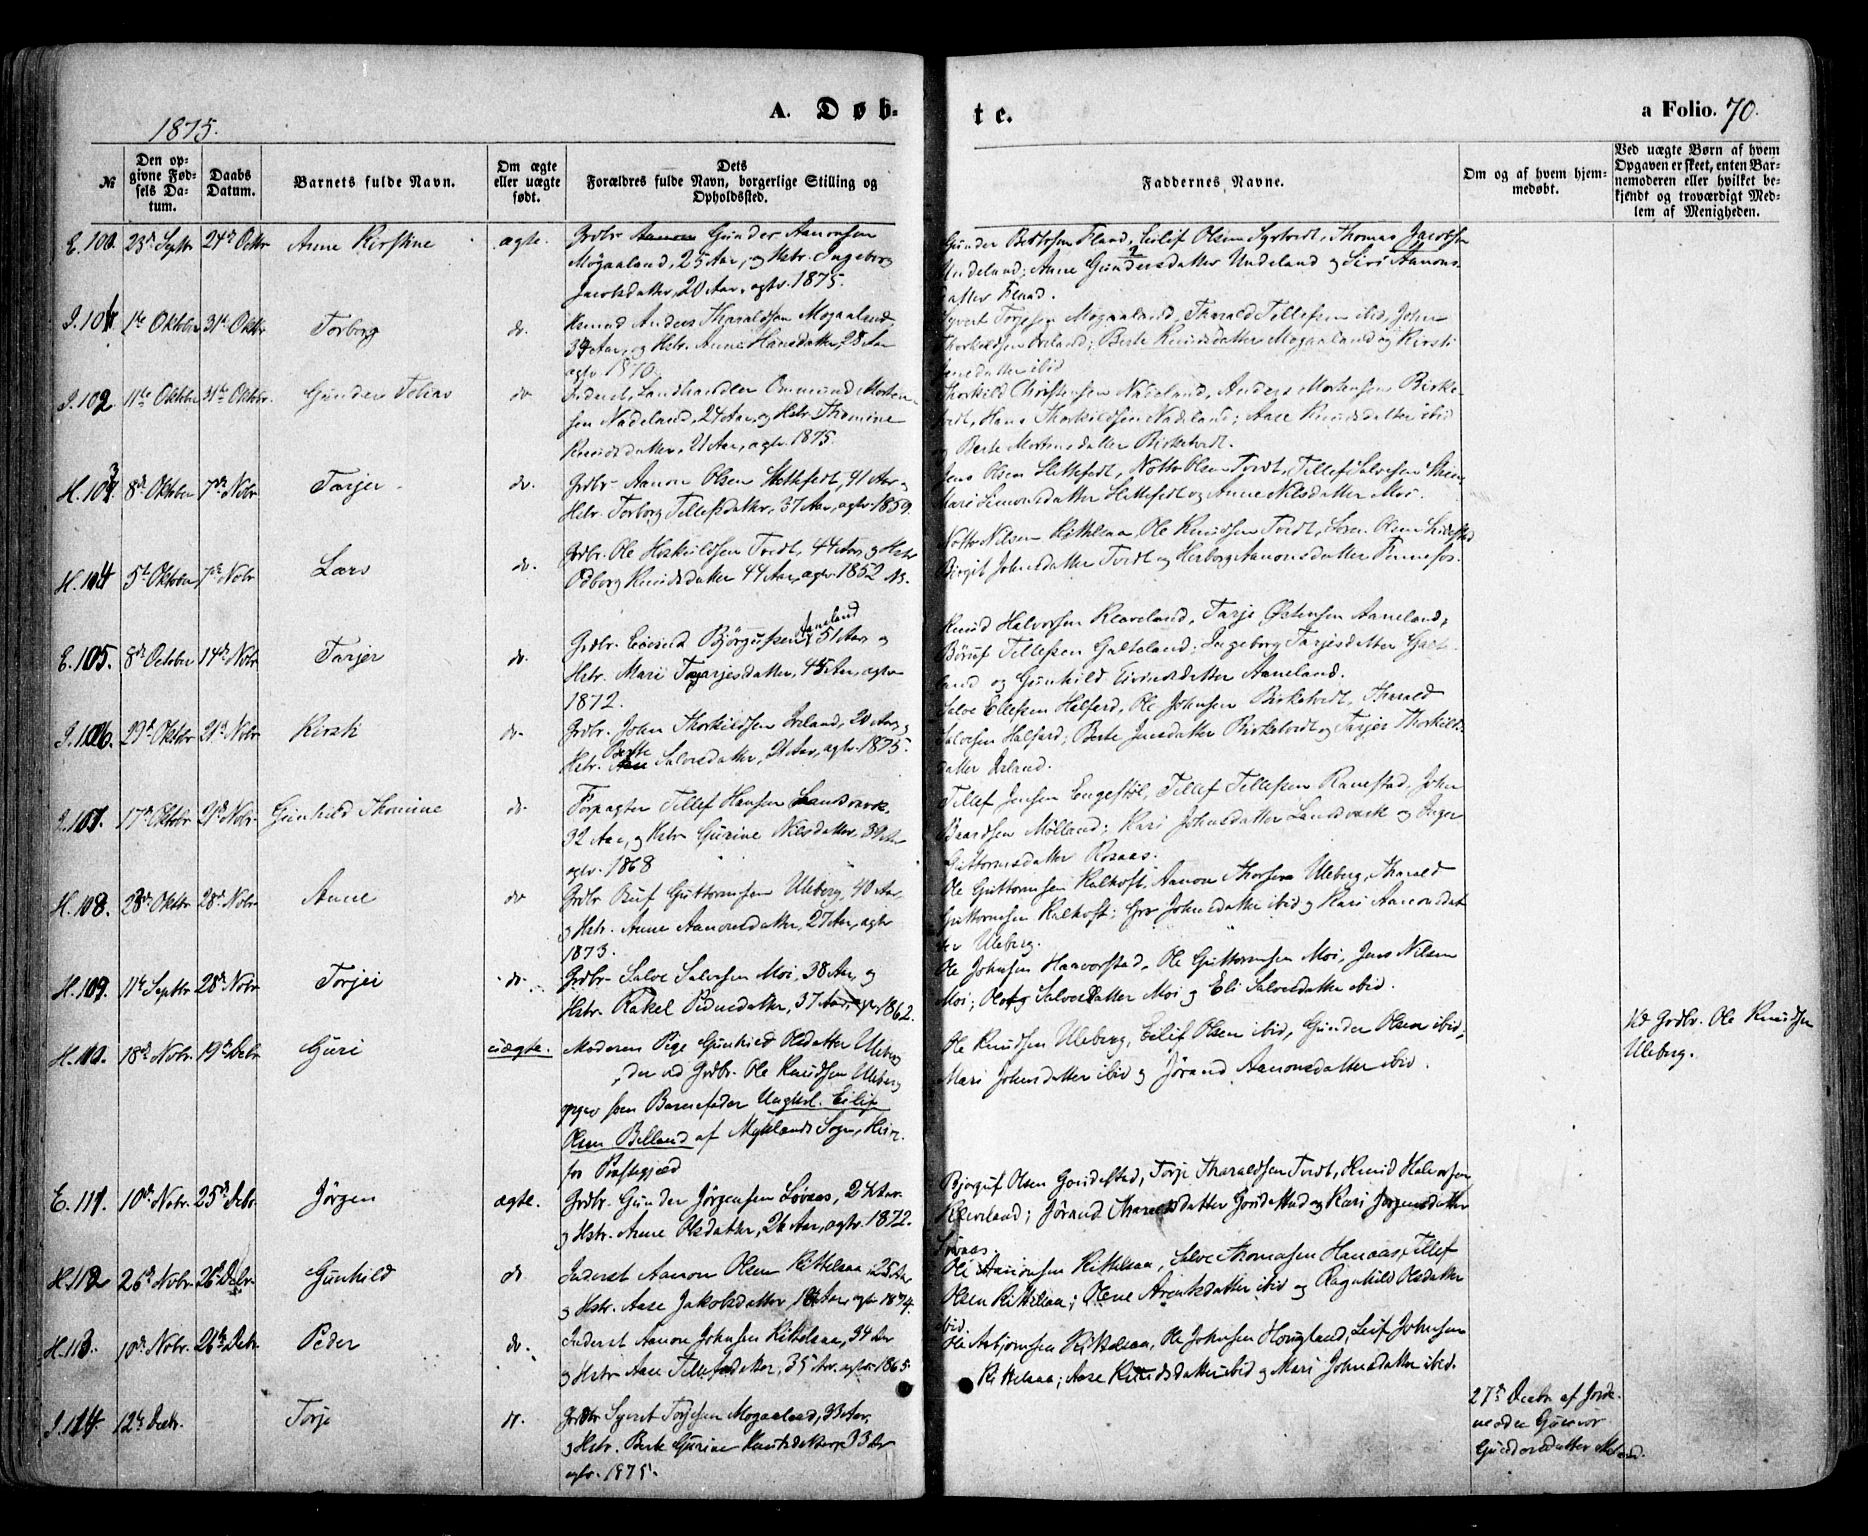 1875.
A. Døb-
te.
a Folio. 70.
№
Den op-
givne Fød-
sels Da-
tum.
Daabs
Datum.
Barnets fulde Navn.
Om ægte
eller uægte
født.
Dets
Forældres fulde Navn, borgerlige Stilling og
Opholdssted.
Faddernes Navne.
Om og af hvem hjem-
medøbt.
Ved uægte Børn af hvem
Opgaven er skeet, enten Bar-
nemoderen eller hvilket be-
kjendt og troværdigt Med-
lem af Menigheden.
E. 100. 23de Septbr 24de Octbr Anne Kirstine ægte.
Grdbr Gunder Aanonsen
Mögaaland, 25 Aar, og Hstr. Ingeborg
Jacobsdatter, 20 Aar, agtv. 1875.
Undeland; Anne Gundersdatter Undeland og Siri Aanons-
datter Fland.
J. 101 1ste Oktober 31te Oktbr Torborg do.
Anders Tharaldsen Mogaaland,
34 Aar, og Hstr. Anne Hansdatter, 28 Aar
agtv 1870.
Syvert Torjesen Mogaaland, Tharald Tellefsen ibid, John
Thorkildsen Ireland; Berte Knudsdatter Mogaaland og Kirsti
datter ibid
J. 102 11te Oktober 31te Oktbr. Gunder Tobias do
Inderst, Landhandler Ommund Morten-
sen Nädeland, 24 Aar, og Hstr. Thomine
Knudsdatter, 21 Aar, agtv. 1875.
Thorkild Christensen Nädeland, Anders Mortensen Birke-
tvedt, Hans Thorkildsen Nädeland; Aase Knudsdatter ibid
og Berte Mortensdatter Birketvedt.
H. 103 8de Oktober 7de Nobr Tarjer do.
Grdbr. Aanon Olsen Slettefedt, 41 Aar og
Hstr. Torborg Tellefsdatter, 37 Aar, agtv 1859.
Jens Olsen Slettefedt, Notto Olsen Tvedt, Tellef Salvesen
Mari Simonsdatter Slettefedt og Anne Nilsdatter Moi.
H. 104 5te Oktober 7de Nobr Lars do.
Grdbr. Ole Hoskuldsen Tvedt, 44 Aar, og Hstr
Odborg Knudsdatter 44 Aar, agtv 1852
Notto Nilsen Kittelsaa, Ole Knudsen Tvedt, Søren Olsen
Birgit Johnsdatter Tvedt og Herborg Aanonsdatter Finnefos.
E. 105. 8de October 14de Nobr Tarjer do.
Aaneland
Grdbr. Eivind Björgufsen, 51 Aar og
Hstr. Mari Tarjesdatter, 45 Aar, agtv
1872.
Knud Halvorsen Kleveland, Tarje Östensen Aaneland,
Böruf Tellefsen Galteland; Ingeborg Tarjesdatter Galte-
land og Gunhild Eivindsdatter Aaneland.
J. 106. 29de Oktbr 21de Nobr. Kirsti do
Grdbr. John Thorkildsen Ireland, 20 Aar, og
Hstr. Berte Salvesdatter, 21 Aar, agtv. 1875.
Salve Ellefsen Halfard, Ole Johnsen Birketvedt, Tharald
Salvesen Halfard; Berte Jensdatter Birketvedt og Tarjer Thorkilds-
datter Ireland.
J. 107. 17de Oktbr. 21de Nobr. Gunhild Thomine do
Forpagter Tellef Hansen Landsværk,
32 Aar, og Hstr Gurine Nilsdatter, 39 Aar
agtv. 1868
Tellef Jensen Engestöl, Tellef Tellefsen Ranestad, John
Baardsen Mölland; Kari Johnsdatter Landsværk og Inger
Guttormsdatter Rosaas.
H. 108. 23de Oktbr. 28de Nobr. Anne do
Grdbr Buf Guttormsen Uleberg, 40 Aar,
og Hstr. Anne Aanonsdatter, 27 Aar, agtv
1873.
Ole Guttormsen Kalhoft, Aanon Thorsen Uleberg, Tharald
Guttormsen Kalhoft; Gro Johnsdatter ibid og Kari Aanonsdat-
ter Uleberg.
H. 109. 11te Septbr 28de Nobr. Torjei do.
Grdbr. Salve Salvesen Moi, 38 Aar, og
Hstr. Rakel Pedersdatter, 37 Aar, agtv 1862.
Ole Johnsen Haavorstad, Ole Guttormsen Moi, Jens Nilsen
Moi; Olborg Salvesdatter Moi og Eli Salvesdatter ibid.
H. 110. 18de Nobr. 19de Debr Guri uægte.
Moderen Pige Gunhild Olsdatter Uleberg
, der ved Grdbr. Ole Knudsen Uleberg
opgav som Barnefader Ungkrl. Eilif
Olsen Belland af Myklands Sogn, Here-
fos Præstegjæld
Ole Knudsen Uleberg, Eilif Olsen ibid, Gunder Olsen ibid,
Mari Johnsdatter ibid og Jörand Aanonsdatter ibid.
Ved Grdbr. Ole Knudsen
Uleberg.
E. 111. 10de Nobr. 25de Debr. Jörgen ægte.
Grdbr. Gunder Jörgensen Lövaas, 24 Aar,
og Hstr. Anne Olsdatter, 26 Aar, agtv. 1872.
Bjorguf Olsen Gordestad, Torje Tharaldsen Tvedt, Knud Halvorsen
Kleveland; Jörand Tharaldsdatter og Kari Jörgensdatter
Lövaas
H. 112 26de Nobr. 26de Debr. Gunhild do
Inderst Aanon Olsen Kittelsaa 25 Aar
og Hstr. Aase Jakobsdatter Aar, agtv 1874.
Ole Aanonsen Kittelsaa, Salve Thomasen Hanaas, Tellef
Olsen Kittelsaa; Olene Arentsdatter ibid og Ragnhild Olsdatter
ibid.
H. 113. 10de Nobr. 26de Debr. Peder do.
Inderst Aanon Johnsen Kittelsaa, 34 Aar
og Hstr. Aase Tellefsdatter, 35 Aar, agtv 1865.
Ole Asbjörnsen Kittelsaa, Ole Johnsen Hongland, Leif Johnsen
Kittelsaa; Aase Knudsdatter ibid og Mari Johnsdatter ibid.
J. 114. 12te Decbr. Torje do.
Grdbr Syvert Torjesen Mogaaland, 33 Aar,
og Hstr. Berte Gurine Knudsdatter, 33 Aar
agtv. 1875.
27de Decbr af Jorde-
moder Gunvor
Gundersdatter